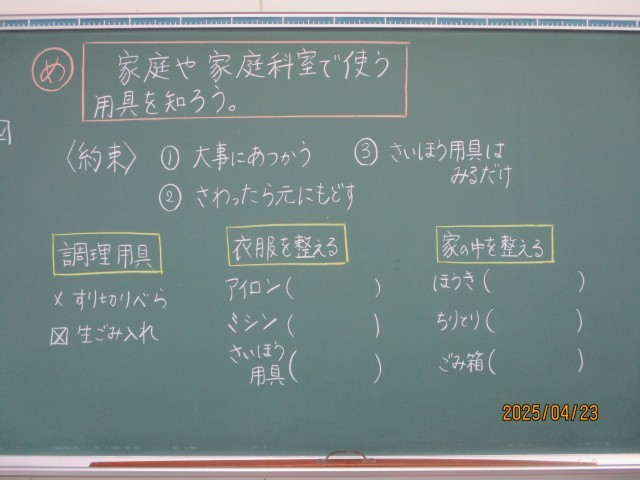 め
家庭や家庭科室で使う
用具を知ろう。
〈約束〉 ① 大事にあつかう
② さわったら元にもどす
③ さいほう用具は
みるだけ
調理用具
× すり切りべら
☒ 生ごみ入れ
衣服を整える
アイロン( )
ミシン( )
さいほう
用具( )
家の中を整える
ほうき( )
ちりとり( )
ごみ箱( )
2025/04/23